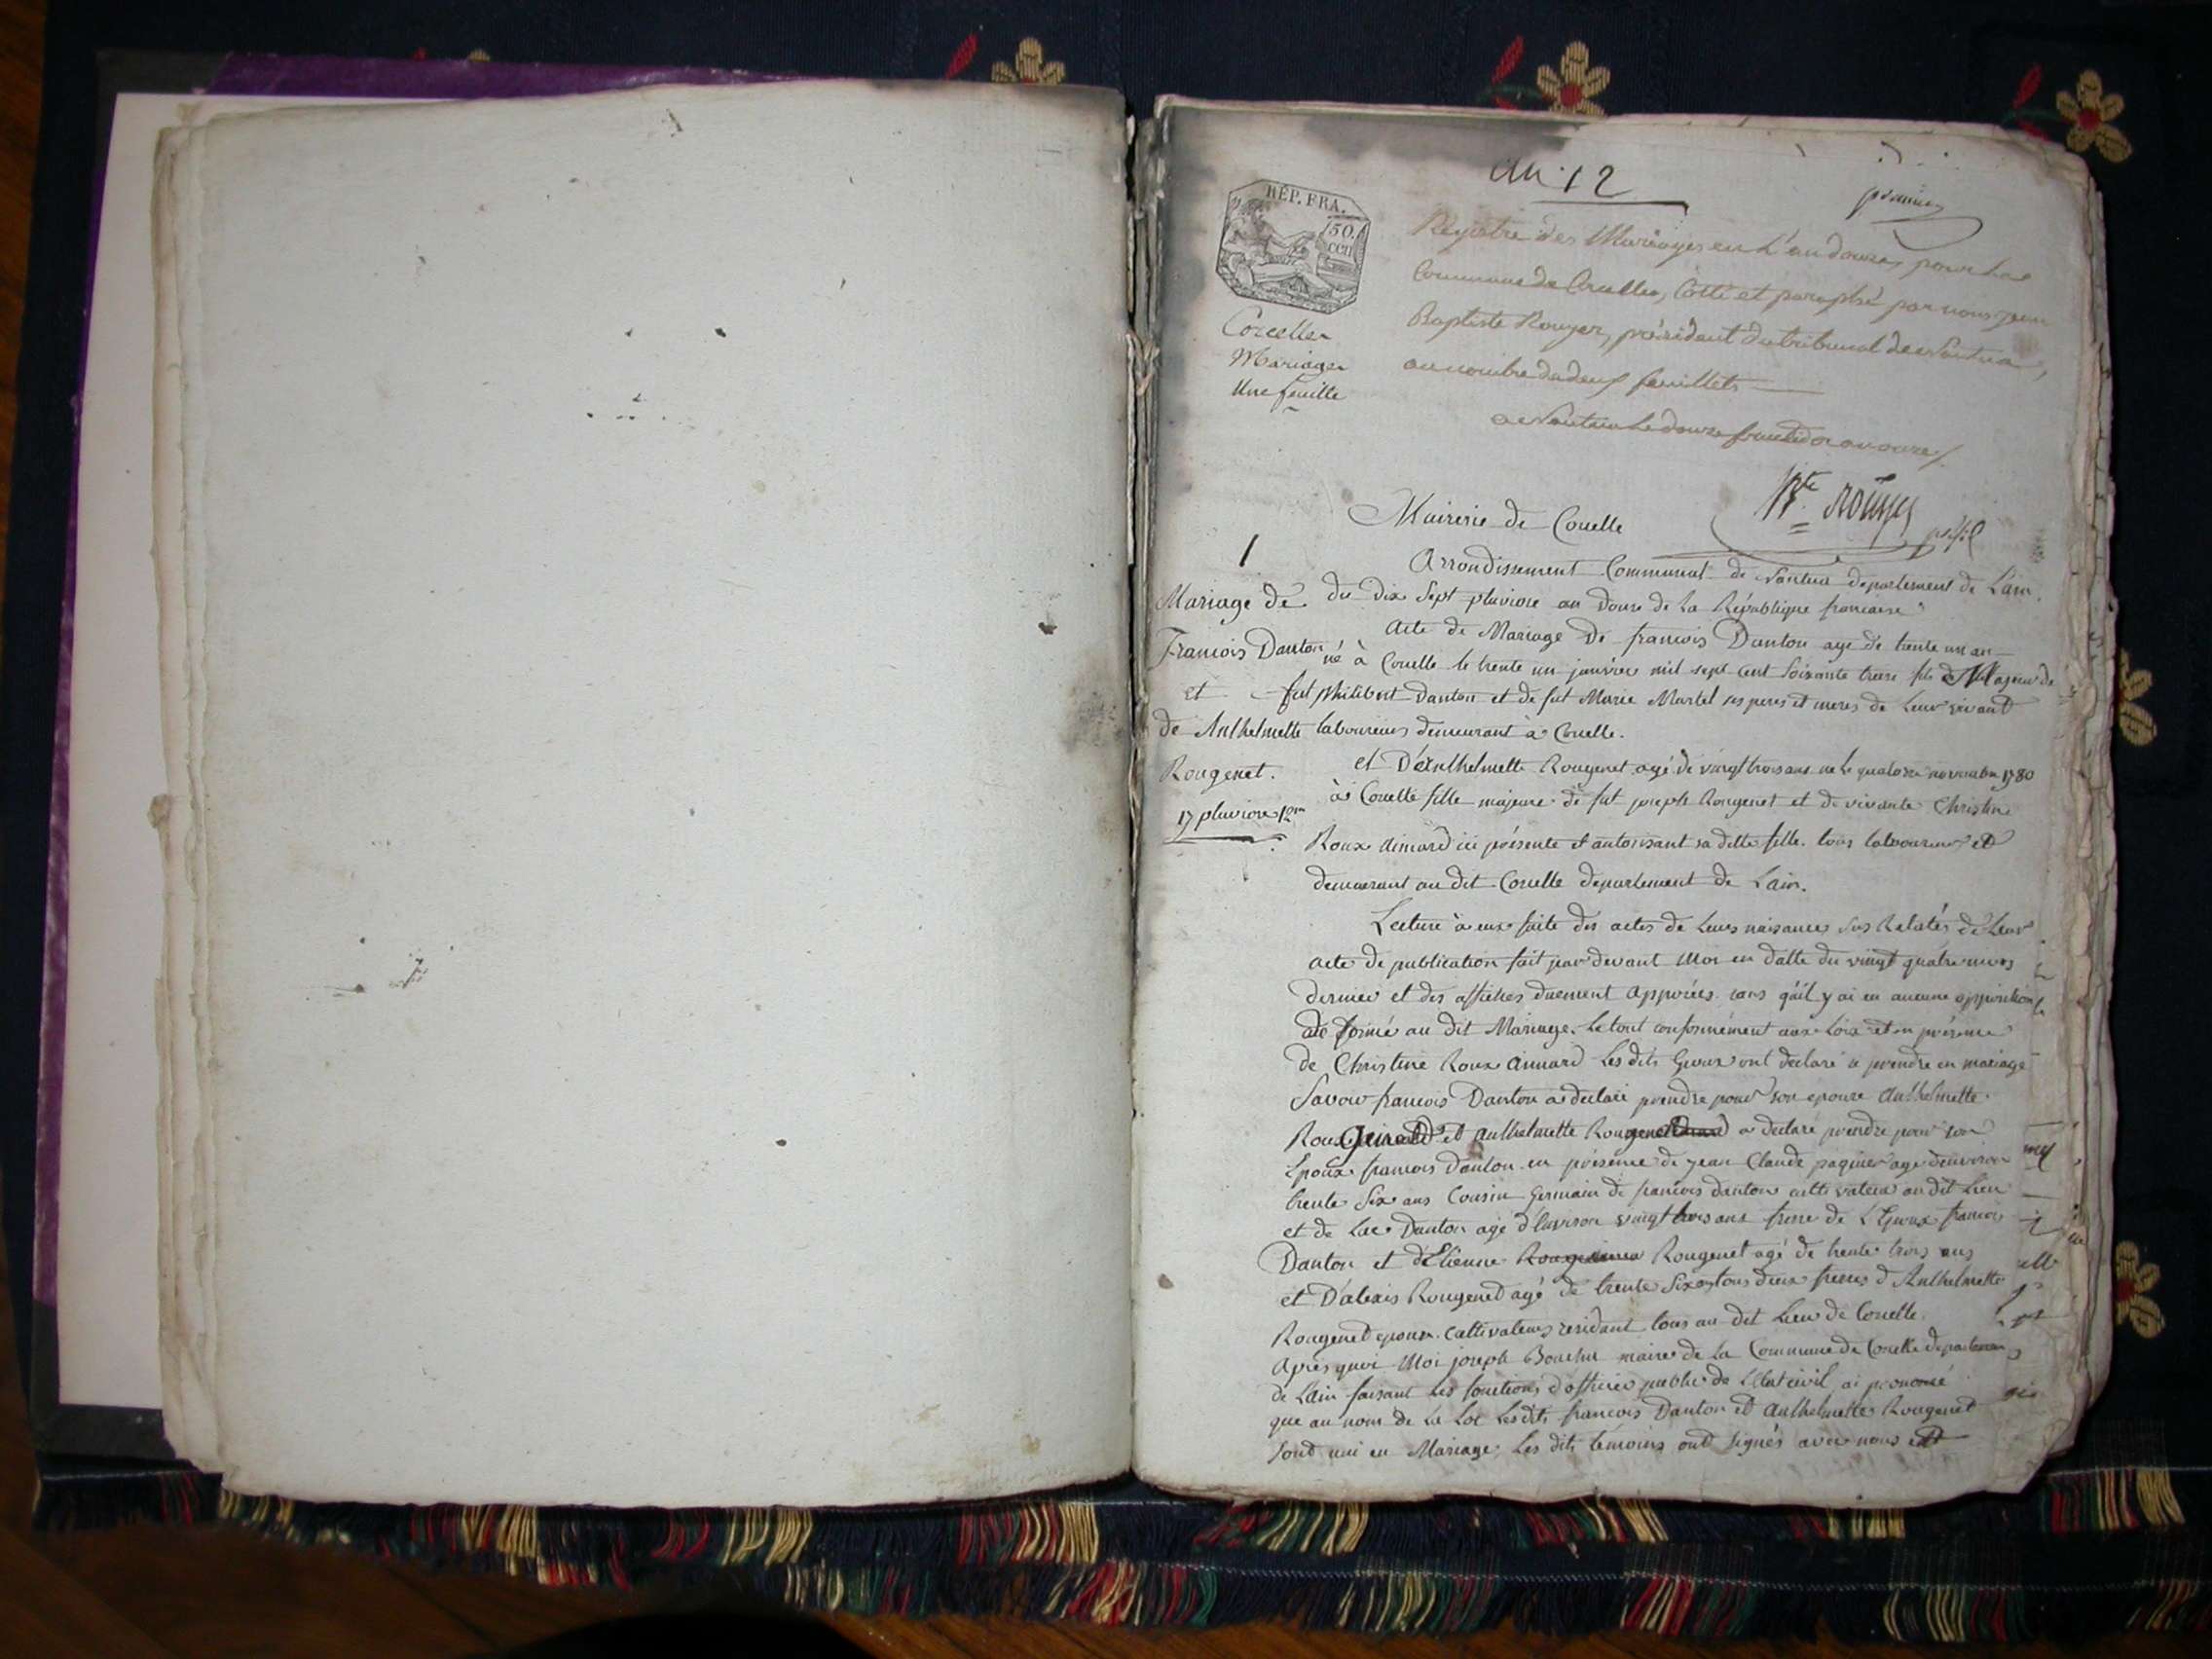 an 12
premier
RÉP. FRA.
50.
cen
Registre des Mariages en L'an douze, pour la
Commune de Corcelles, Cotté et paraphé par nous jean
Baptiste Rouyer, président du tribunal de Nantua,
au nombre de deux feuillets
a Nantua le douze fructidor an onze
Corcelles
Mariages
Une feuille
Bte Rouyer
Mairerie de Corcelle
Arrondissement Communal de Nantua departement de L'ain.
1
Mariage de
Francois Danton
et
de Anthelmette
Rougenet.
17 pluviose 12
du dix Sept pluviose an douse de la République francaise
Acte de Mariage de francois Danton agé de trente un an
né à Corcelle le trente un janvier mil sept cent soixante treise fils Majeur de
fut philibert Danton et de fut Marie Martel ses peres et meres de Leur vivant
laboureurs demeurant à Corcelle.
et D'Anthelmette Rougenet agé de vingt trois ans né le quatorze novembre 1780
à Corcelle fille majeure de fut joseph Rougenet et de vivante Christine
Roux aimard ici présente et autorisant sa ditte fille. tous laboureurs et
demeurant au dit Corcelle departement de Lain.
Lecture à eux faite des actes de Leurs naisances sus Relatés de Leur
acte de publication fait par devant Moi en datte du vingt quatre nivos
dernier et des affiches duement apposées sans qu'il y ai eu aucune opposition
formé au dit Mariage. Le tout conformément aux Loix et en présence
de Christine Roux Aimard Les dits Epoux ont declaré se prendre en mariage
Savoir francois Danton a declaré prendre pour son epouse Anthelmette
Rougenet et Anthelmette Rougenet a declaré prendre pour son
Epoux francois Danton en présence de jean Claude paquier agé d'environ
trente Six ans Cousin Germain de francois danton cultivateur au dit Lieu
et de Luc Danton agé d'Environ vingt trois ans frere de L'Epoux francois
Danton et d'Etienne Rougenet agé de trente trois ans
et D'alexis Rougenet agé de trente Six ans tous deux freres d'Anthelmette
Rougenet epouse. Cultivateurs residant tous au dit Lieu de Corcelle.
Après quoi Moi joseph Bouchu maire de la Commune de Corcelle departement
de Lain faisant les fonctions d'officier public de L'Etat civil ai prononcé
que au nom de La Loi Lesdits francois Danton et Anthelmette Rougenet
sont uni en Mariage. Les dits témoins ont signés avec nous et